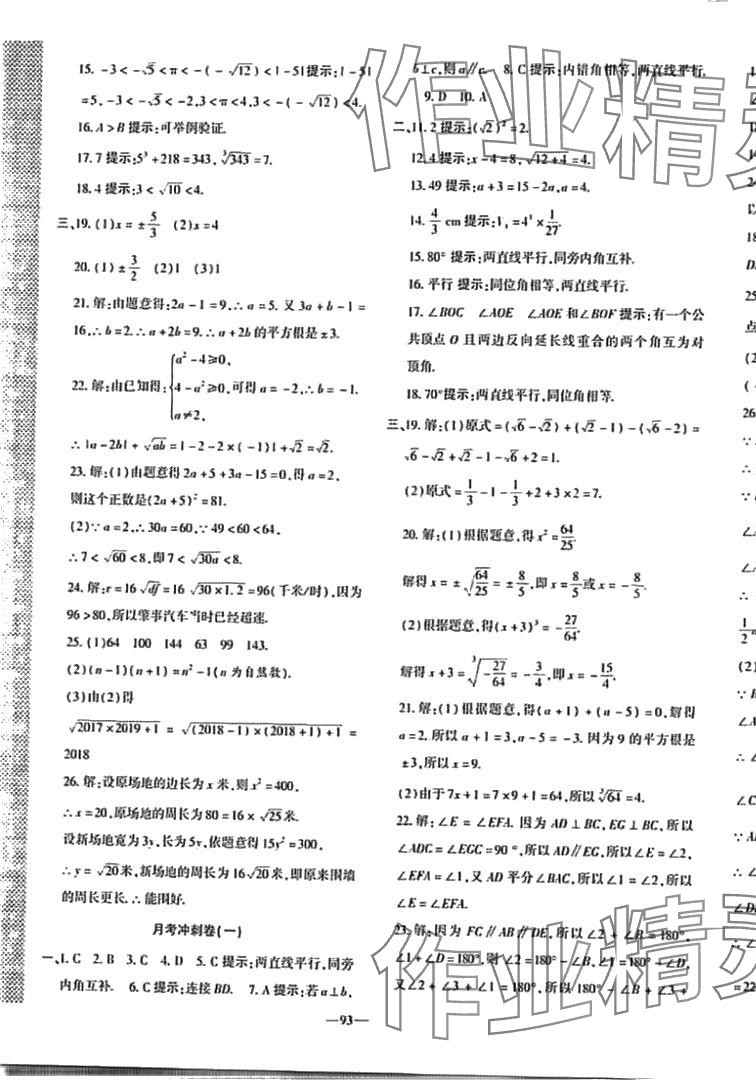 15. -3<-√5<π<-(-√12)<|-5|提示:|-5|
=5,-3<-√5<-2,3<π<4,3<-(-√12)<4.
16. A>B 提示:可举例验证.
17. 7 提示:5³+218=343,∛343=7.
18. 4 提示:3<√10<4.
三、19. (1)x=±5/3 (2)x=4
20. (1)±3/2 (2)1 (3)1
21. 解:由题意得:2a-1=9,∴a=5.又3a+b-1=
16,∴b=2.∴a+2b=9.∴a+2b的平方根是±3.
22. 解:由已知得:{a²-4≥0, 4-a²≥0, a≠2, 可得a=-2,∴b=-1.
∴|a-2b|+√ab=|-2-2×(-1)|+√2=√2.
23. 解:(1)由题意得2a+5+3a-15=0,得a=2,
则这个正数是(2a+5)²=81.
(2)∵a=2,∴30a=60,∵49<60<64,
∴7<√60<8,即7<√30a<8.
24. 解:r=16√df=16√30×1.2=96(千米/时),因为
96>80,所以肇事汽车当时已经超速.
25. (1)64 100 144 63 99 143.
(2)(n-1)(n+1)=n²-1(n为自然数).
(3)由(2)得
√2017×2019+1=√(2018-1)×(2018+1)+1=
2018
26. 解:设原场地的边长为x米,则x²=400,
∴x=20,原场地的周长为80=16×√25米.
设新场地宽为3y,长为5y,依题意得15y²=300,
∴y=√20米,新场地的周长为16√20米,即原来围墙
的周长更长.∴能围好.
月考冲刺卷(一)
一、1. C 2. B 3. C 4. D 5. C 提示:两直线平行,同旁
内角互补. 6. C 提示:连接BD. 7. A 提示:若a⊥b,
b⊥c,则a∥c. 8. C 提示:内错角相等,两直线平行.
9. D 10. A
二、11. 2 提示:(√2)²=2.
12. 4 提示:x-4=8,√12+4=4.
13. 49 提示:a+3=15-2a,a=4.
14. 4/3 cm 提示:l₁=4³×1/27.
15. 80° 提示:两直线平行,同旁内角互补.
16. 平行 提示:同位角相等,两直线平行.
17. ∠BOC ∠AOE ∠AOE和∠BOF 提示:有一个公
共顶点O且两边反向延长线重合的两个角互为对
顶角.
18. 70°提示:两直线平行,同位角相等.
三、19. 解:(1)原式=(√6-√2)+(√2-1)-(√6-2)=
√6-√2+√2-1-√6+2=1.
(2)原式=1/3-1-1/3+2+3×2=7.
20. 解:(1)根据题意,得x²=64/25.
解得x=±√64/25=±8/5,即x=8/5或x=-8/5.
(2)根据题意,得(x+3)³=-27/64.
解得x+3=∛-27/64=-3/4,即x=-15/4.
21. 解:(1)根据题意,得(a+1)+(a-5)=0,解得
a=2.所以a+1=3,a-5=-3.因为9的平方根是
±3,所以x=9.
(2)由于7x+1=7×9+1=64,所以∛64=4.
22. 解:∠E=∠EFA.因为AD⊥BC,EG⊥BC,所以
∠ADC=∠EGC=90°,所以AD∥EG,所以∠E=∠2,
∠EFA=∠1,又AD平分∠BAC,所以∠1=∠2,所以
∠E=∠EFA.
23. 解:因为FC∥AB∥DE,所以∠2+∠B=180°,
∠1+∠D=180°,则∠2=180°-∠B,∠1=180°-∠D,
又∠2+∠3+∠1=180°,所以180°-∠B+∠3+
—93—
作业精灵
作业精灵